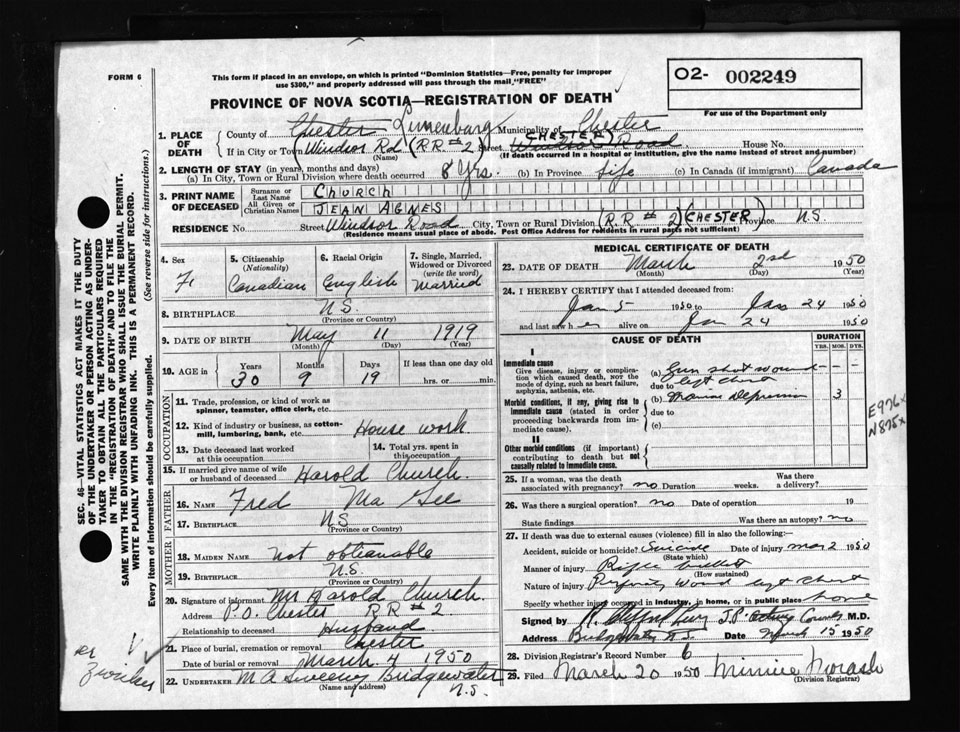 FORM 6
This form if placed in an envelope, on which is printed "Dominion Statistics—Free, penalty for improper
use $300," and properly addressed will pass through the mail "FREE"
O2- 002249
For use of the Department only
PROVINCE OF NOVA SCOTIA—REGISTRATION OF DEATH
1. PLACE OF DEATH
County of Chester Lunenburg Municipality of Chester
If in City or Town Windsor Rd (RR #2) CHESTER Street Windsor Road, House No.
(Name) (If death occurred in a hospital or institution, give the name instead of street and number)
2. LENGTH OF STAY (in years, months and days)
(a) In City, Town or Rural Division where death occurred 8 Yrs. (b) In Province life (c) In Canada (if immigrant) Canada
3. PRINT NAME OF DECEASED
Surname or Last Name Church
All Given or Christian Names JEAN AGNES
RESIDENCE No. Street Windsor Road City, Town or Rural Division (RR # 2) (CHESTER) Province N.S.
(Residence means usual place of abode. Post Office Address for residents in rural parts not sufficient)
SEC. 46—VITAL STATISTICS ACT MAKES IT THE DUTY
OF THE UNDERTAKER OR PERSON ACTING AS UNDER-
TAKER TO OBTAIN ALL THE PARTICULARS REQUIRED
IN THE "REGISTRATION OF DEATH" AND TO FILE THE
SAME WITH THE DIVISION REGISTRAR WHO SHALL ISSUE THE BURIAL PERMIT.
WRITE PLAINLY WITH UNFADING INK. THIS IS A PERMANENT RECORD.
Every item of information should be carefully supplied. (See reverse side for instructions.)
4. Sex F
5. Citizenship (Nationality) Canadian
6. Racial Origin English
7. Single, Married, Widowed or Divorced (write the word) Married
8. BIRTHPLACE N.S.
(Province or Country)
9. DATE OF BIRTH May 11 1919
(Month) (Day) (Year)
10. AGE in Years 30 Months 9 Days 19 If less than one day old hrs. or min.
OCCUPATION
11. Trade, profession, or kind of work as
spinner, teamster, office clerk, etc.
12. Kind of industry or business, as cotton-
mill, lumbering, bank, etc. House work
13. Date deceased last worked at this occupation
14. Total yrs. spent in this occupation
15. If married give name of wife
or husband of deceased Harold Church.
FATHER
16. Name Fred Ma Gee
17. Birthplace N.S.
(Province or Country)
MOTHER
18. Maiden Name not obtianable
19. Birthplace N.S.
(Province or Country)
20. Signature of informant Mr Harold Church.
Address P.O. Chester RR # 2.
Relationship to deceased Husband
21. Place of burial, cremation or removal Chester
Date of burial or removal March 4 1950
22. UNDERTAKER M A Sweeny Bridgewater
(Name and address) N.S.
MEDICAL CERTIFICATE OF DEATH
23. DATE OF DEATH March 2nd 1950
(Month) (Day) (Year)
24. I HEREBY CERTIFY that I attended deceased from:
Jan 5 1950 to Jan 24 1950
and last saw her alive on Jan 24 1950
CAUSE OF DEATH
DURATION
YRS. MOS. DYS.
I
Immediate cause
Give disease, injury or complica-
tion which caused death, not the
mode of dying, such as heart failure,
asphyxia, asthenia, etc.
(a) Gun shot wound
due to left chest
Morbid conditions, if any, giving rise to
immediate cause (stated in order
proceeding backwards from im-
mediate cause).
(b) Depression 3
due to
(c)
E976x
N875x
II
Other morbid conditions (if important)
contributing to death but not
causally related to immediate cause.
25. If a woman, was the death
associated with pregnancy? no Duration weeks. Was there a delivery?
26. Was there a surgical operation? no Date of operation 19
State findings Was there an autopsy? no
27. If death was due to external causes (violence) fill in also:
Accident, suicide or homicide? Suicide Date of injury Mar 2 1950
(State which)
Manner of injury Rifle bullet
(How sustained)
Nature of injury left chest
Specify whether injury occurred in industry, in home, or in public place home
Signed by M.D.
Address Bridgewater N.S. Date March 15 1950
28. Division Registrar's Record Number 6
29. Filed March 20 1950 Minnie Morash
(Division Registrar)